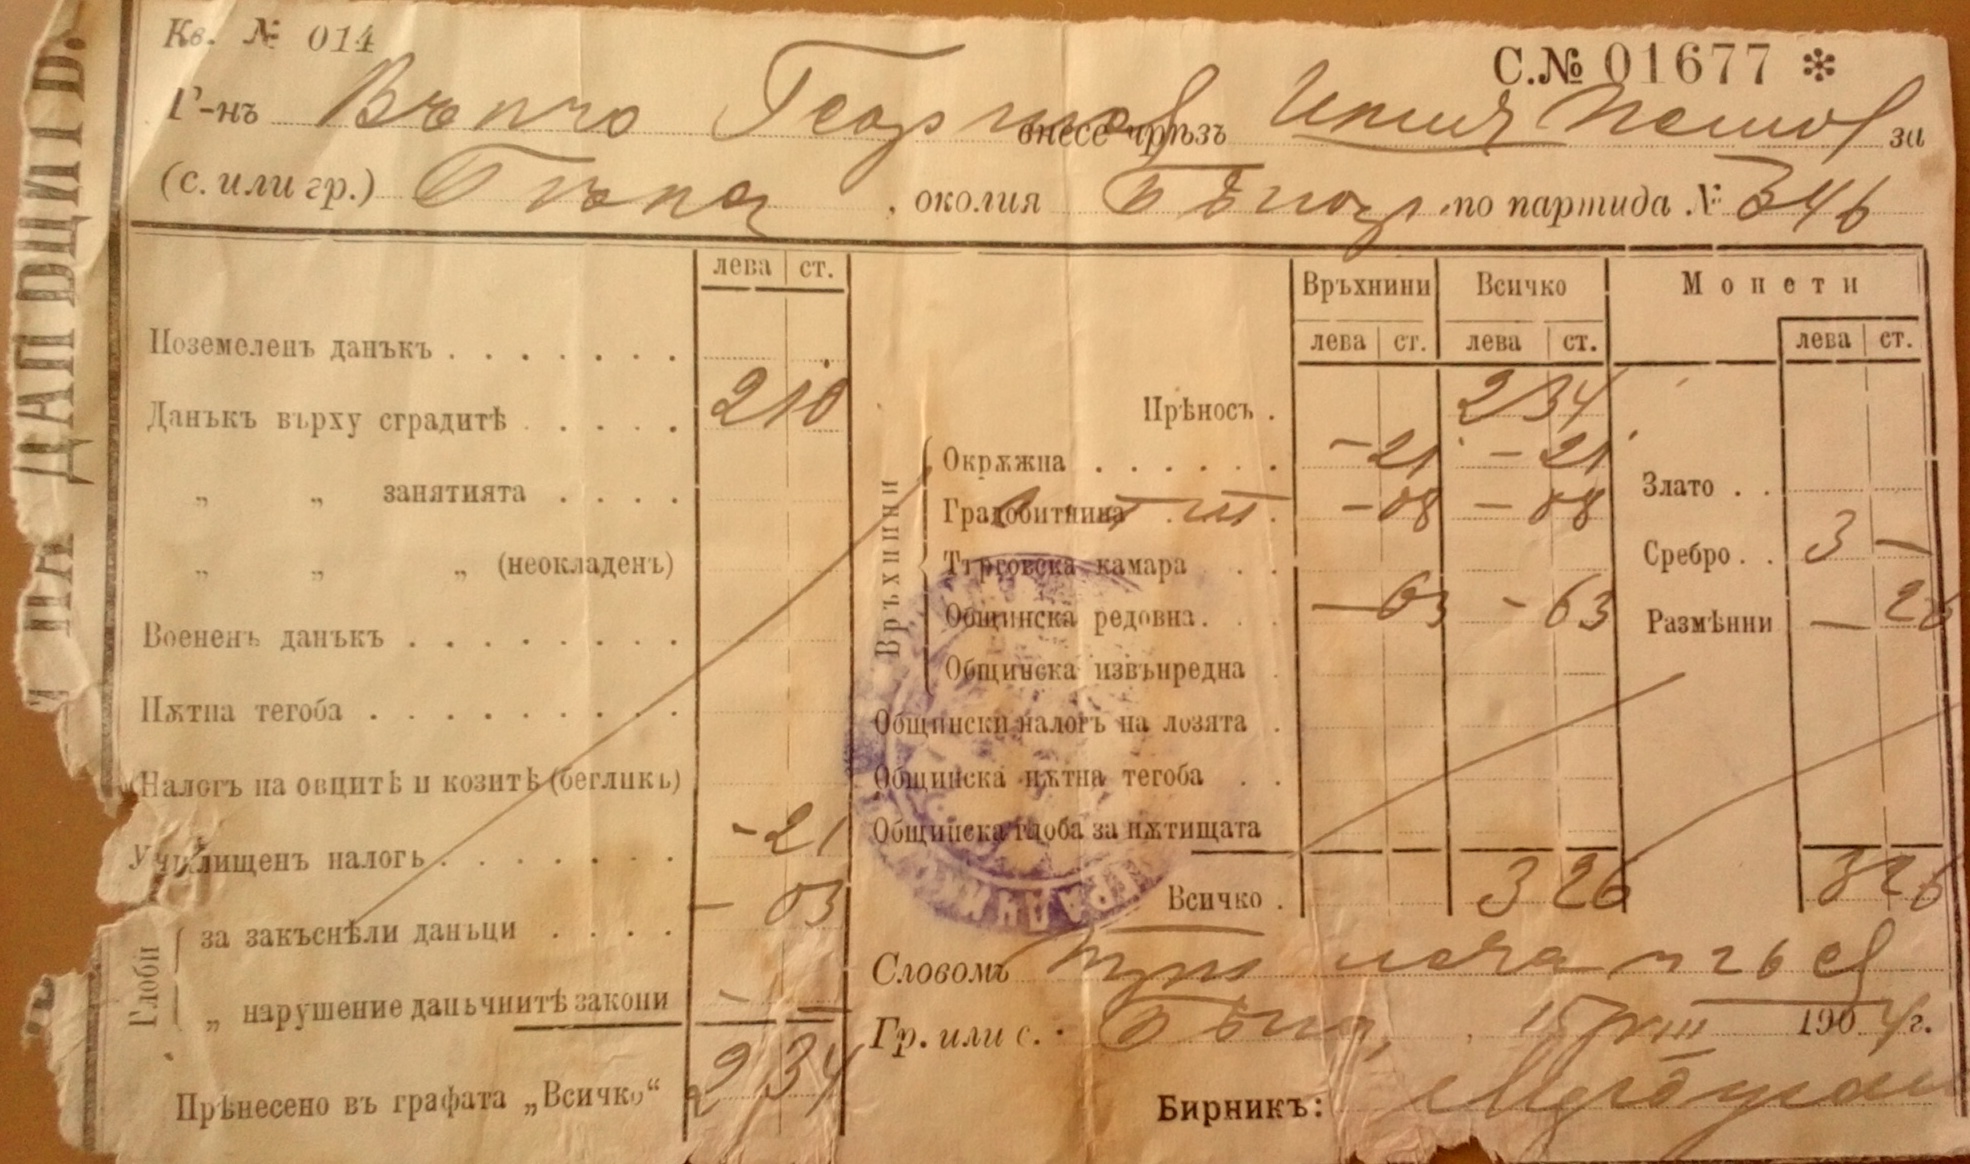 Кв. № 014
С.№ 01677 *
Г-нъ Вълчо Георгиев внесе чрѣзъ Илия Пешов за
(с. или гр.) Бѣла, околия Бѣлска по партида № 346
лева ст.
Поземеленъ данъкъ . . . . . . .
Данъкъ върху сградитѣ . . . . . 2 10
„ „ занятията . . . .
„ „ „ (неокладенъ)
Воененъ данъкъ . . . . . . . .
Пѫтна тегоба . . . . . . . . .
Налогъ на овцитѣ и козитѣ (бегликъ)
Училищенъ налогъ . . . . . . . - 21
Глоби
за закъснѣли данъци . . . . - 03
„ нарушение данъчнитѣ закони - -
Прѣнесено въ графата „Всичко“ 2 34
Връхнини Всичко Монети
лева ст. лева ст. лева ст.
Прѣносъ . 2 34
Връхнини
Окрѫжна . . . . . . - 21 - 21
Градобитнина . . . - 08 - 08
Търговска камара . .
Общинска редовна . . . - 63 - 63
Общинска извънредна .
Общински налогъ на лозята .
Общинска пѫтна тегоба . .
Общинска глоба за пѫтищата
Всичко . 3 26 3 26
Злато . .
Сребро . . 3 -
Размѣнни - 26
Словомъ три лева и 26 ст
Гр. или с. Бѣла, 15/VIII 1904 г.
Бирникъ: